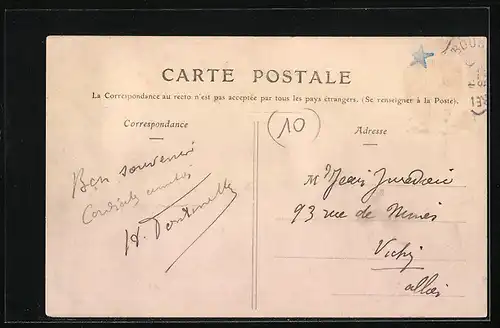 CARTE POSTALE
La Correspondance au recto n'est pas acceptée par tous les pays étrangers. (Se renseigner à la Poste).
Correspondance
10
Adresse
Bon souvenir
H.
Mr Jean
93 rue de Nimes
Vichy
allier